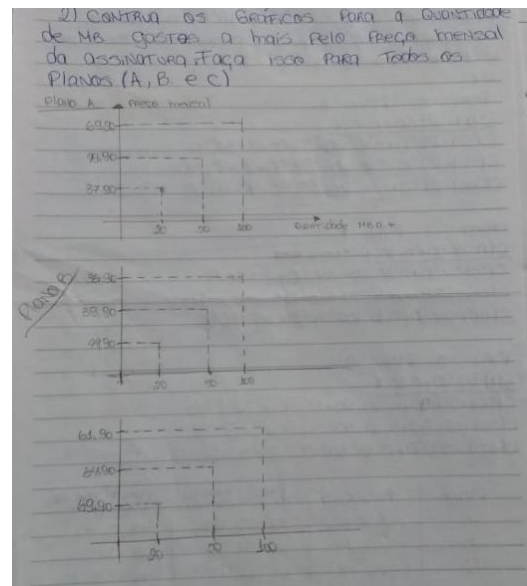 2) CONTRUA OS GRÁFICOS PARA A QUANTIDADE
de MB gastos a mais pelo PREÇO mensal
da assinatura. Faça isso PARA Todos os
Planos (A, B e C)
Plano A Preço mensal
69.90
37.90
20 50 100 Quantidade
Plano B
39.90
20 50 100
61.90
20 50 100